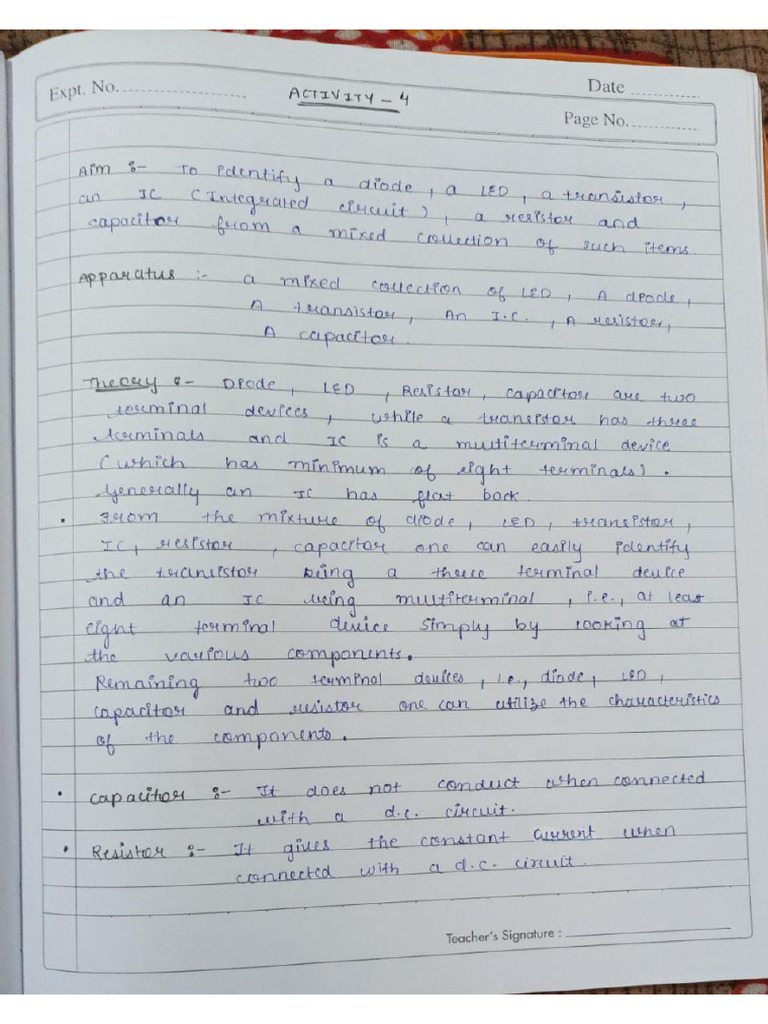 Expt. No.
ACTIVITY - 4
Date
Page No.
Aim :- To identify a diode, a LED, a transistor,
an IC (Integrated circuit), a resistor and
capacitor from a mixed collection of such items
Apparatus :- a mixed collection of LED, A diode,
A transistor, An I.C., A resistor,
A capacitor.
Theory :- Diode, LED, Resistor, capacitor are two
terminal devices, while a transistor has three
terminals and IC is a multiterminal device
(which has minimum of eight terminals).
Generally an IC has flat back.
• From the mixture of diode, LED, transistor,
IC, resistor, capacitor one can easily identify
the transistor being a three terminal device
and an IC being multiterminal, i.e., at least
eight terminal device simply by looking at
the various components.
Remaining two terminal devices, i.e., diode, LED,
capacitor and resistor one can utilize the characteristics
of the components.
• Capacitor :- It does not conduct when connected
with a d.c. circuit.
• Resistor :- It gives the constant current when
connected with a d.c. circuit.
Teacher's Signature :